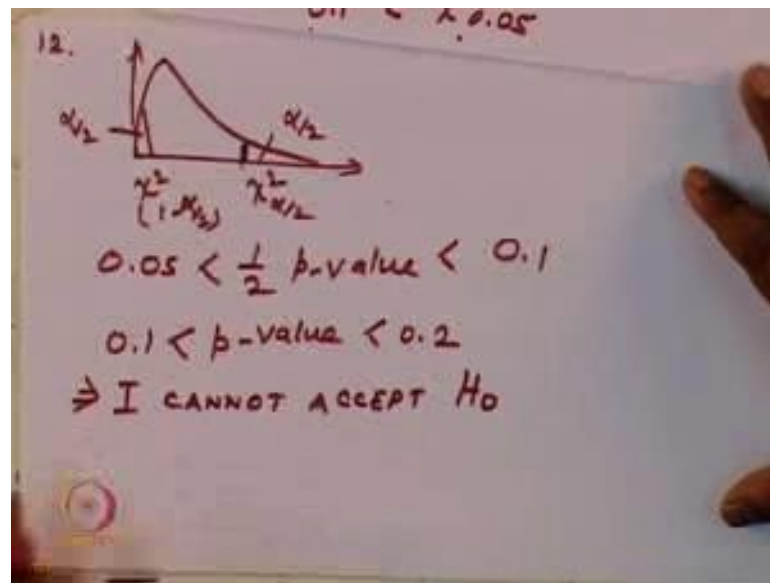 12.
α/2
α/2
χ²(1-α/2)
χ²α/2
0.05 < 1/2 p-value < 0.1
0.1 < p-value < 0.2
⇒ I CANNOT ACCEPT H0